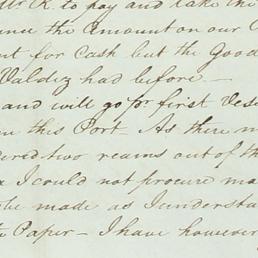 Mr. K. to pay and take the
ence the Amount on our C
nt for Cash but the Good
Valdez had before —
and will go pr first Vess
m this Port. As there m
ered two reams out of th
x I could not procure ma
be made as I understa
Paper — I have however